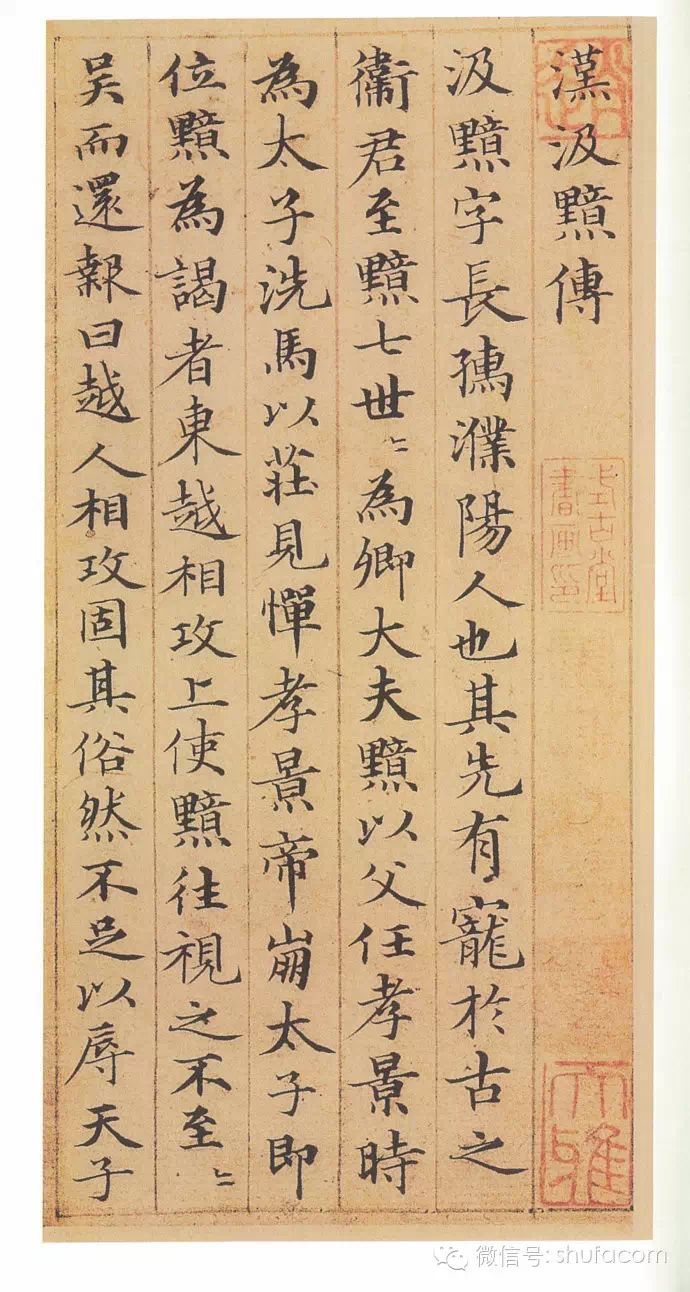 漢汲黯傳
汲黯字長孺濮陽人也其先有寵於古之
衛君至黯七世〻為卿大夫黯以父任孝景時
為太子洗馬以莊見憚孝景帝崩太子即
位黯為謁者東越相攻上使黯往視之不至〻
吳而還報曰越人相攻固其俗然不足以辱天子
式古堂
書畫印
大雅
微信号: shufacom